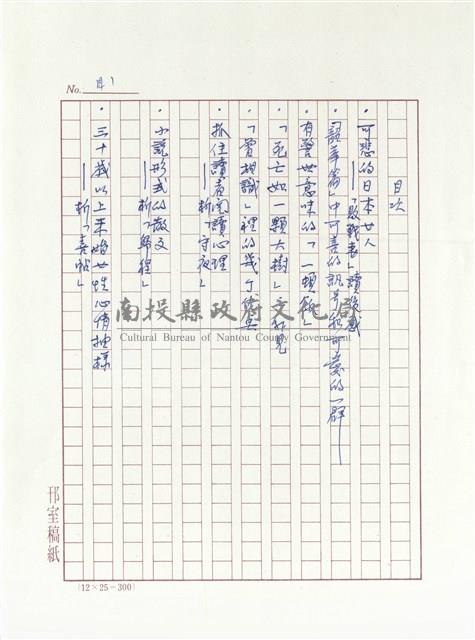 No. 目1
目次
·可悲的日本女人
——「敗戰妻」讀後感
·「韶華篇」中可喜的訊息和可愛的一群——
·有警世意味的「一頓飯」
·「死亡如一顆大樹」
·「曾相識」裡的幾個
·抓住讀者閱讀心理
——析「守夜」
·小說形式的散文
——析「歸程」
·三十歲以上未婚女性心情抽樣
——析「喜帖」
南投縣政府文化局
Cultural Bureau of Nantou County Government
邗室稿紙
(12×25=300)